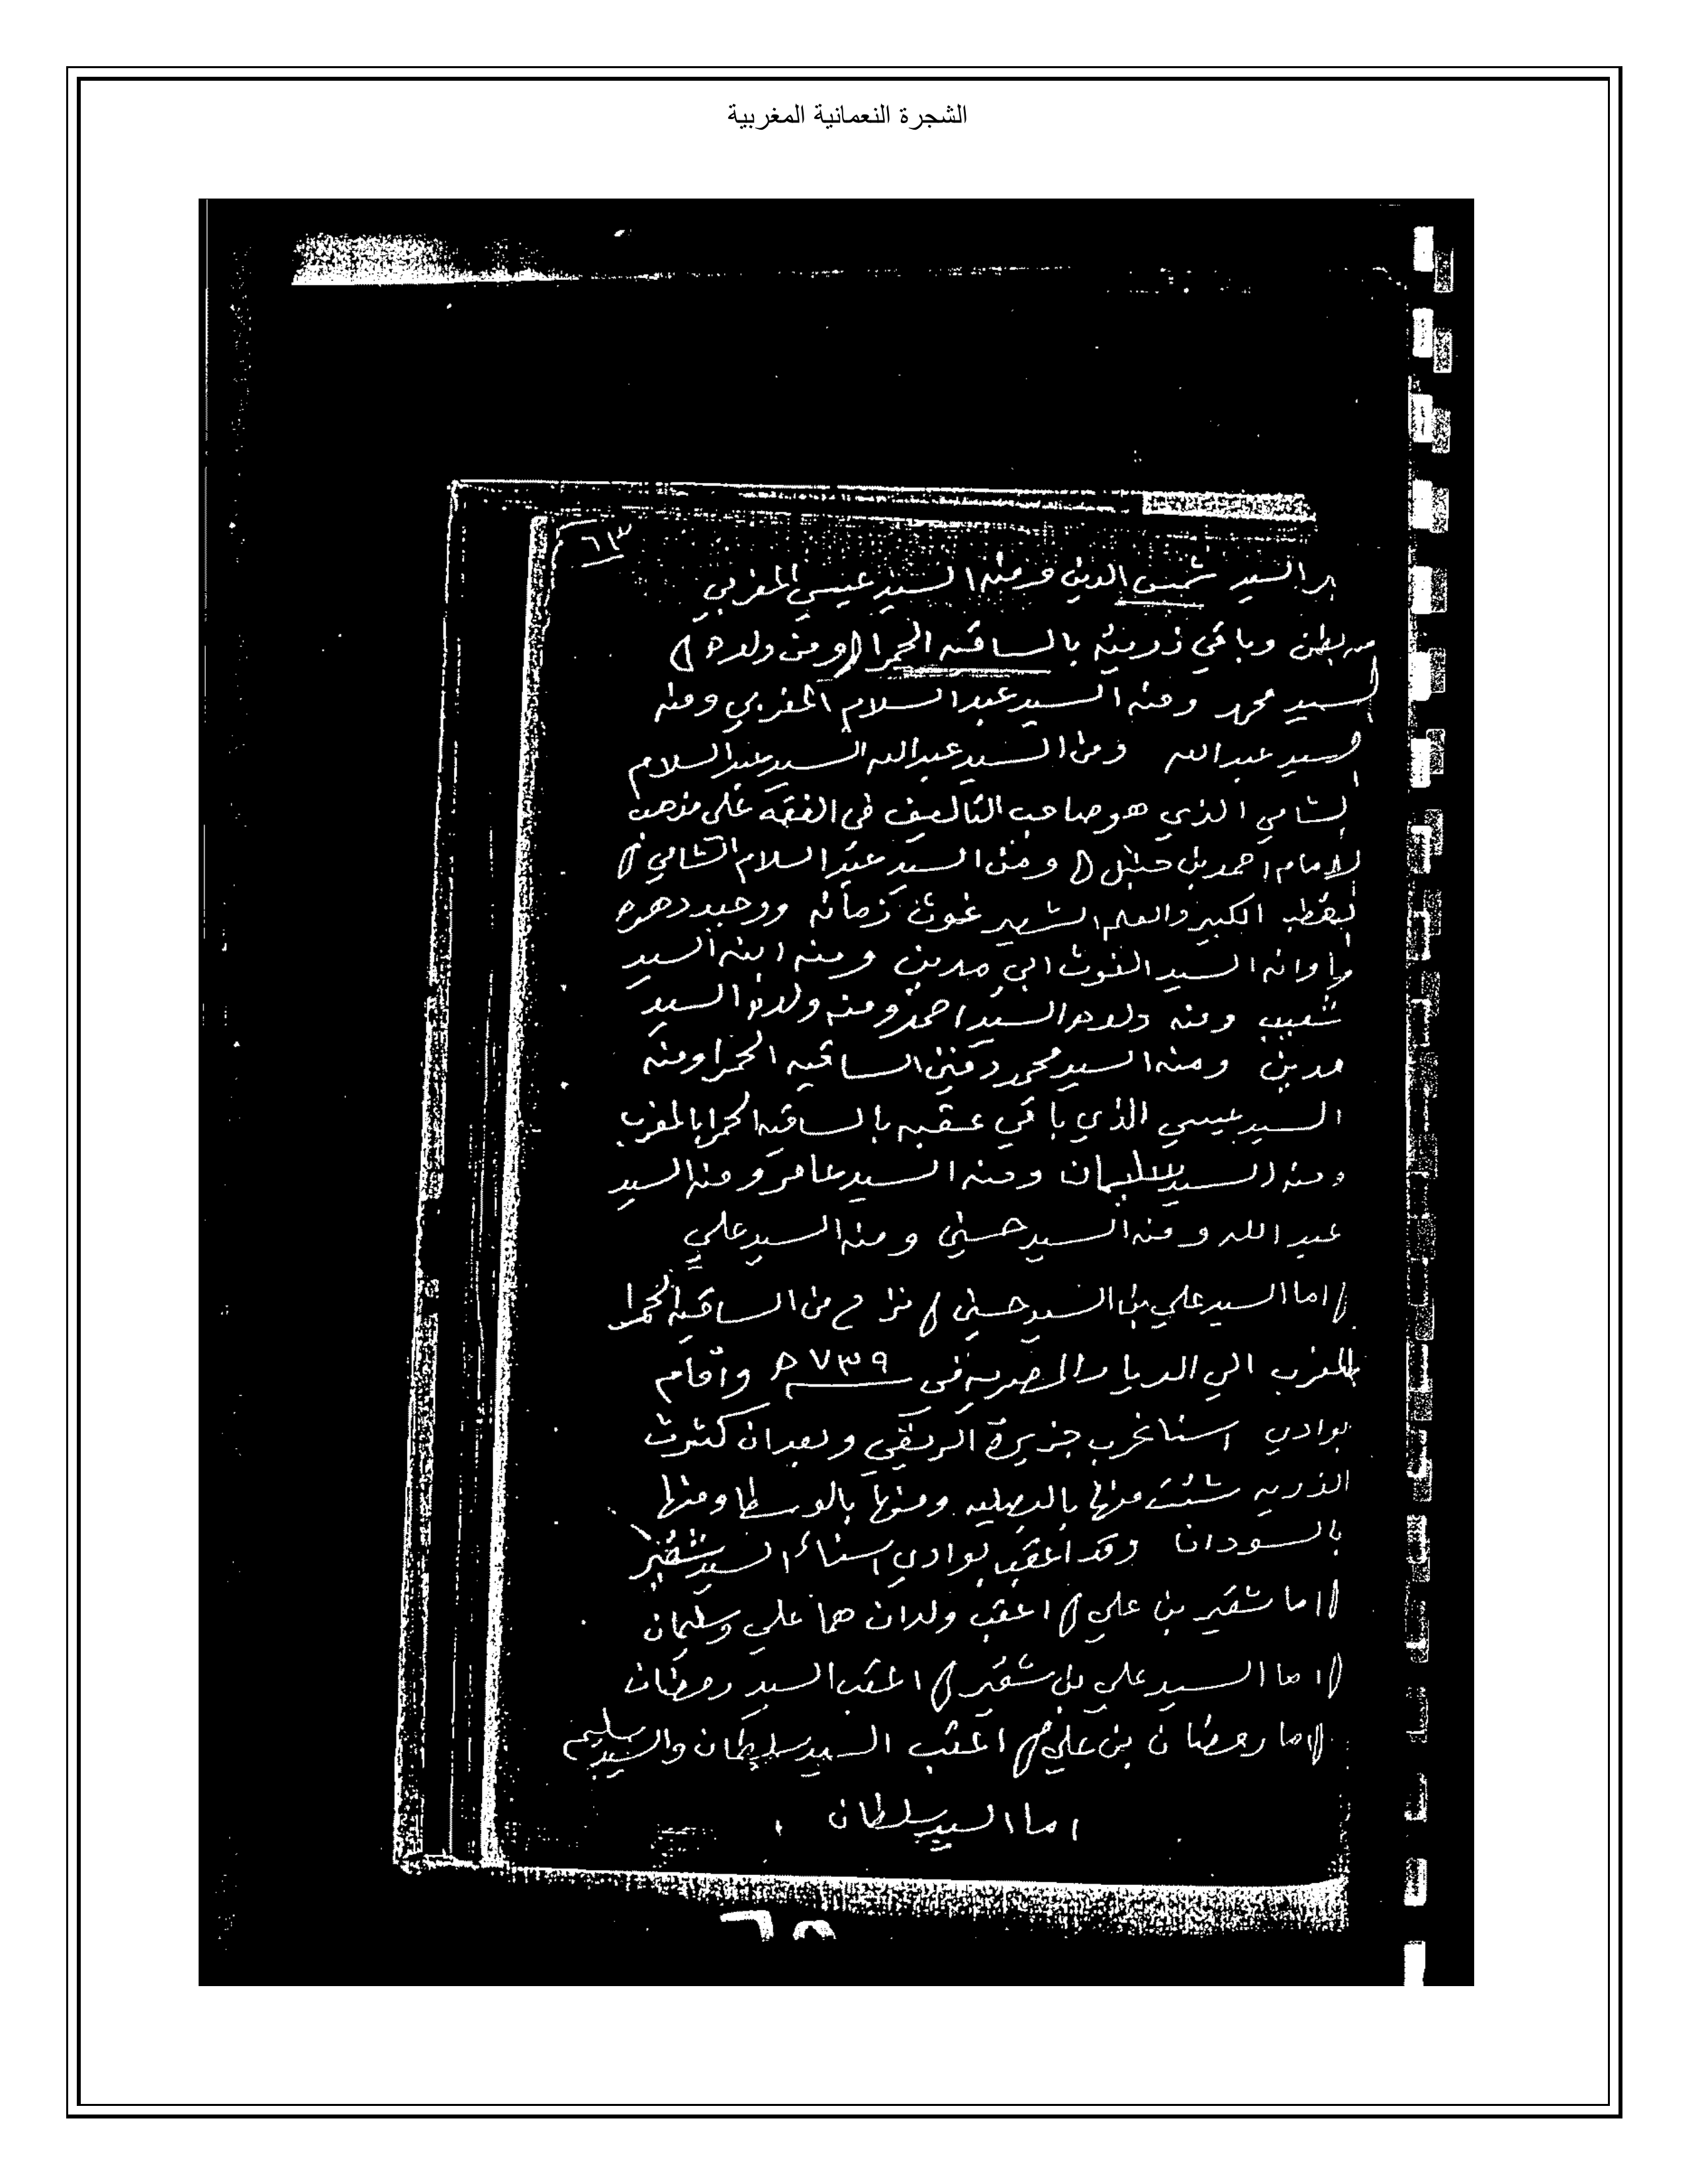 الشجرة النعمانية المغربية
٦١٣
السيد شمس الدين ومنه السيد عيسي المغربي
وباقي ذريته بالساقيه الحمرا (ومن ولده)
السيد محمد ومنه السيد عبد السلام المغربي ومنه
السيد عبد الله ومن السيد عبد الله السيد عبد السلام
الشامي الذي هو صاحب التأليف في الفقه على مذهب
الامام احمد بن حنبل () ومن السيد عبد السلام الشامي )
القطب الكبير والعلم الشهير غوث زمانه ووحيد دهره
واوانه السيد الغوث ابي مدين ومنه ابنه السيد
شعيب ومنه ولده السيد احمد ومنه ولده السيد
مدين ومنه السيد محمد دفين الساقيه الحمرا ومنه
السيد عيسي الذي باقي عقبه بالساقيه الحمرا بالمغرب
ومنه السيد سليمان ومنه السيد عامر ومنه السيد
عبد الله ومنه السيد حسين ومنه السيد علي
(اما السيد علي بن السيد حسين) نزح من الساقيه الحمرا
بالمغرب الي الديار المصريه في ٧٣٩ ه وأقام
بوادي اسنا غرب جزيرة الريقي وبعد ان كثرت
الذريه شتت منها بالبصليه ومنها بالوسطا ومنها
بالسودان وقد أعقب بوادي اسناء السيد شقير
(اما شقير بن علي) اعقب ولدان هما علي وسليمان
(اما السيد علي بن شقير) اعقب السيد رمضان
(اما رمضان بن علي) اعقب السيد سلطان والسيد سليم
اما السيد سلطان
٦٥